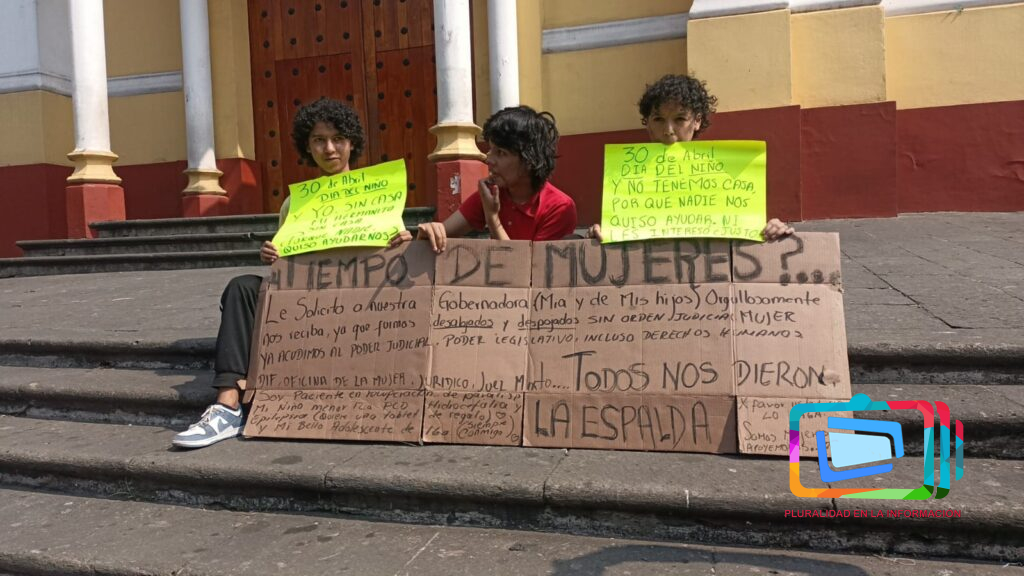 30 de Abril
DIA DEL NIÑO
Y YO, SIN CASA
MI HERMANITO
SIN CASA
NADIE NOS
QUISO AYUDAR.
30 de Abril
DIA DEL NIÑO
Y NO TENEMOS CASA,
POR QUE NADIE NOS
QUISO AYUDAR. NI
LES INTERESO ¿JUSTO
TIEMPO DE MUJERES?...
Le Solicito a nuestra Gobernadora (Mia y de Mis hijos) Orgullosamente MUJER
nos reciba, ya que fuimos desalojados y despojados SIN ORDEN JUDICIAL
YA ACUDIMOS AL PODER JUDICIAL, PODER LEGISLATIVO, INCLUSO DERECHOS HUMANOS
DIF, OFICINA DE LA MUJER, JURIDICO, .... TODOS NOS DIERON
LA ESPALDA
Soy Paciente en
Mi Niño menor Hidrocefalia
de regalo
y Mi Bello Adolescente de 16a Conmigo
X favor
LO
Somos
PLURALIDAD EN LA INFORMACIÓN